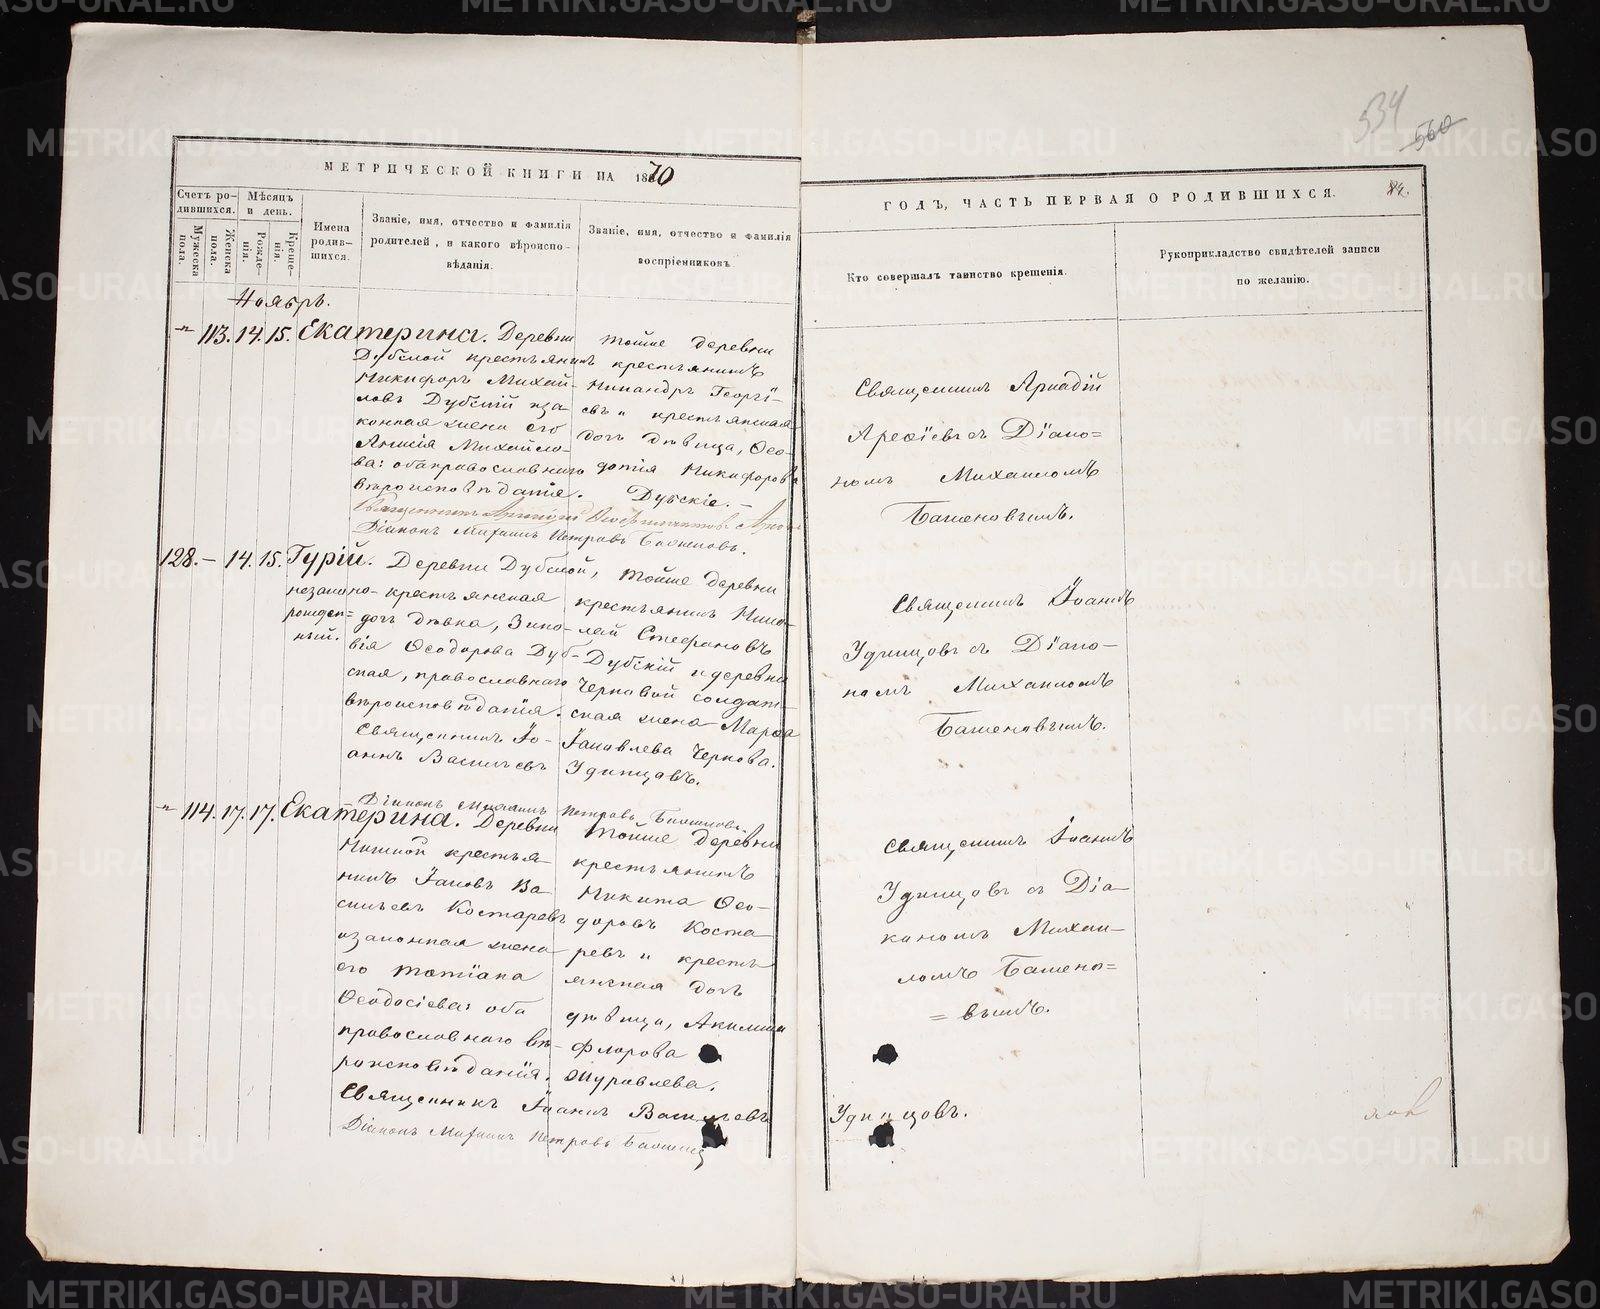 534
560
МЕТРИЧЕСКОЙ КНИГИ НА 1870
ГОДЪ, ЧАСТЬ ПЕРВАЯ О РОДИВШИХСЯ.
84.
Счетъ ро-
дившихся.
Мѣсяцъ
и день.
Мужеска
пола.
Женска
пола.
Рожде-
нія.
Креще-
нія.
Имена
родив-
шихся.
Званіе, имя, отчество и фамилія
родителей, и какого вѣроиспо-
вѣданія.
Званіе, имя, отчество и фамилія
воспріемниковъ.
Кто совершалъ таинство крещенія.
Рукоприкладство свидѣтелей записи
по желанію.
Ноябрь.
113. 14. 15. Екатерина.
Деревни
Дубской крестьянинъ
Никифоръ Михай-
ловъ Дубскій иза-
конная жена его
Анисія Михайло-
ва: оба православнаго
вѣроисповѣданія.
Тойже деревни
крестьянинъ
Никандръ Георгі-
евъ и крестьянская
дочь дѣвица, Ѳео-
дотія Никифорова
Дубскіе.
Священникъ Аркадій
Діаконъ Михаилъ Петровъ Баженовъ.
Священникъ Аркадій
Арефіевъ съ Діако=
номъ Михаиломъ
Баженовымъ.
128. – 14. 15. Гурій.
незакон-
норожден=
ный.
Деревни Дубской,
крестьянская
дочь дѣвка, Зино-
вія Ѳеодорова Дуб-
ская, православнаго
вѣроисповѣданія.
Тойже деревни
крестьянинъ Нико-
лай Стефановъ
Дубскій и деревни
Черновой солдат-
ская жена Марѳа
Іаковлева Чернова.
Священникъ Іо-
аннъ Васильевъ Удинцовъ.
Діаконъ Михаилъ Петровъ Баженовъ.
Священникъ Іоаннъ
Удинцовъ съ Діако-
номъ Михаиломъ
Баженовымъ.
114. 17. 17. Екатерина.
Деревни
крестья-
нинъ Іаковъ Ва-
сильевъ Костаревъ
изаконная жена
его Татіана
Ѳеодосіева: оба
православнаго вѣ-
роисповѣданія.
Тойже деревни
крестьянинъ
Никита Ѳео-
доровъ Коста-
ревъ и кресть-
янская дочь
дѣвица, Акилина
Флорова
Журавлева.
Священникъ Іоаннъ Васильевъ Удинцовъ.
Діаконъ Михаилъ Петровъ Баженовъ
Священникъ Іоаннъ
Удинцовъ съ Діа-
кономъ Михаи-
ломъ Бажено=
=вымъ.
METRIKI.GASO-URAL.RU